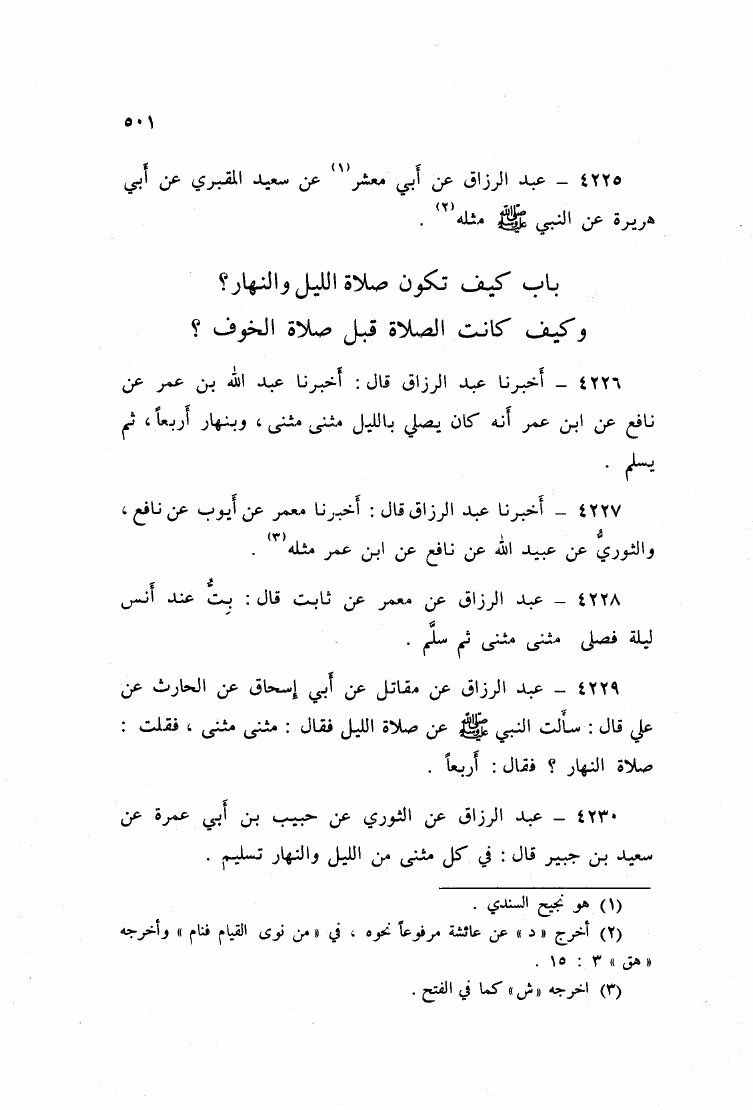 ٥٠١
٤٢٢٥ – عبد الرزاق عن أبي معشر(١) عن سعيد المقبري عن أبي
هريرة عن النبي ﷺ مثله(٢) .
باب كيف تكون صلاة الليل والنهار؟
وكيف كانت الصلاة قبل صلاة الخوف ؟
٤٢٢٦ – أخبرنا عبد الرزاق قال : أخبرنا عبد الله بن عمر عن
نافع عن ابن عمر أنه كان يصلي بالليل مثنى مثنى ، وبنهار أربعاً ، ثم
يسلم .
٤٢٢٧ – أخبرنا عبد الرزاق قال : أخبرنا معمر عن أيوب عن نافع ،
والثوريُّ عن عبيد الله عن نافع عن ابن عمر مثله(٣) .
٤٢٢٨ – عبد الرزاق عن معمر عن ثابت قال : بِتُّ عند أنس
ليلة فصلى مثنى مثنى ثم سلَّم .
٤٢٢٩ – عبد الرزاق عن مقاتل عن أبي إسحاق عن الحارث عن
علي قال : سألت النبي ﷺ عن صلاة الليل فقال : مثنى مثنى ، فقلت :
صلاة النهار ؟ فقال : أربعاً .
٤٢٣٠ – عبد الرزاق عن الثوري عن حبيب بن أبي عمرة عن
سعيد بن جبير قال : في كل مثنى من الليل والنهار تسليم .
(١) هو نجيح السندي .
(٢) أخرج « د » عن عائشة مرفوعاً نحوه ، في « من نوى القيام فنام » وأخرجه
« هق » ٣ : ١٥ .
(٣) اخرجه «ش» كما في الفتح .